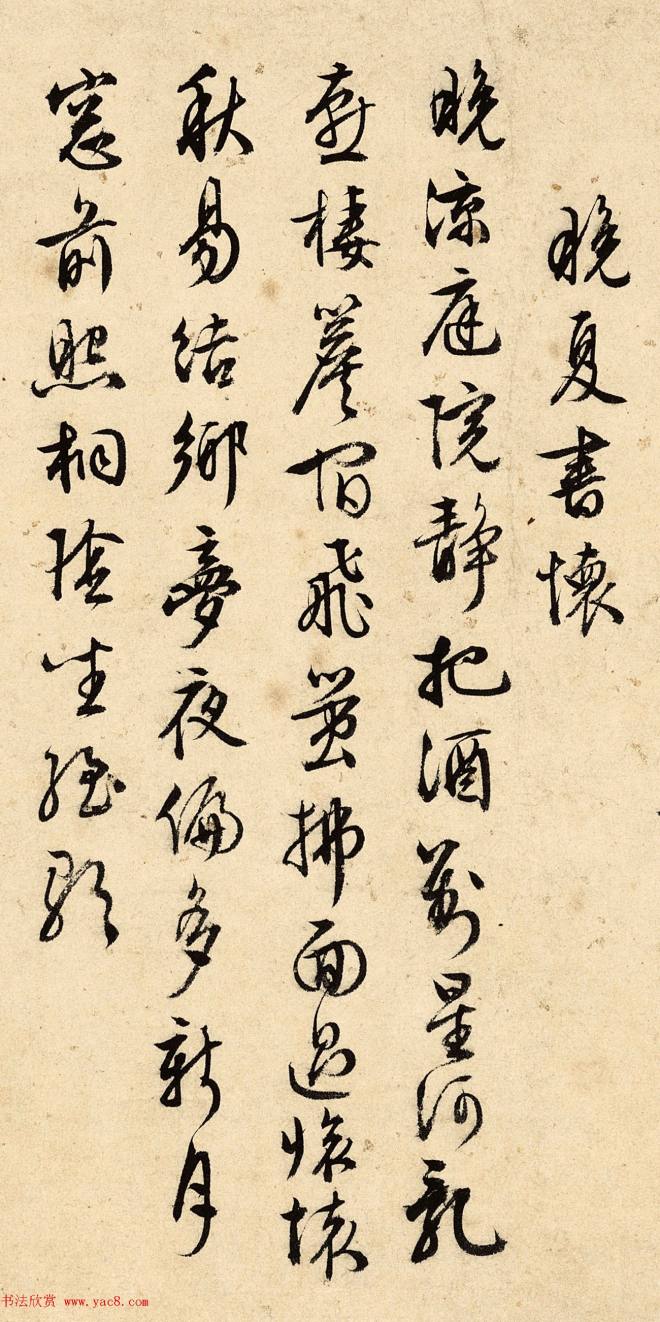 晚夏書懷
晚涼庭院靜把酒對星河亂
棲簷宿飛螢拂面過懷
秋易結鄉夢夜偏多新月
窓前照桐陰坐歌
书法欣赏 www.yac8.com